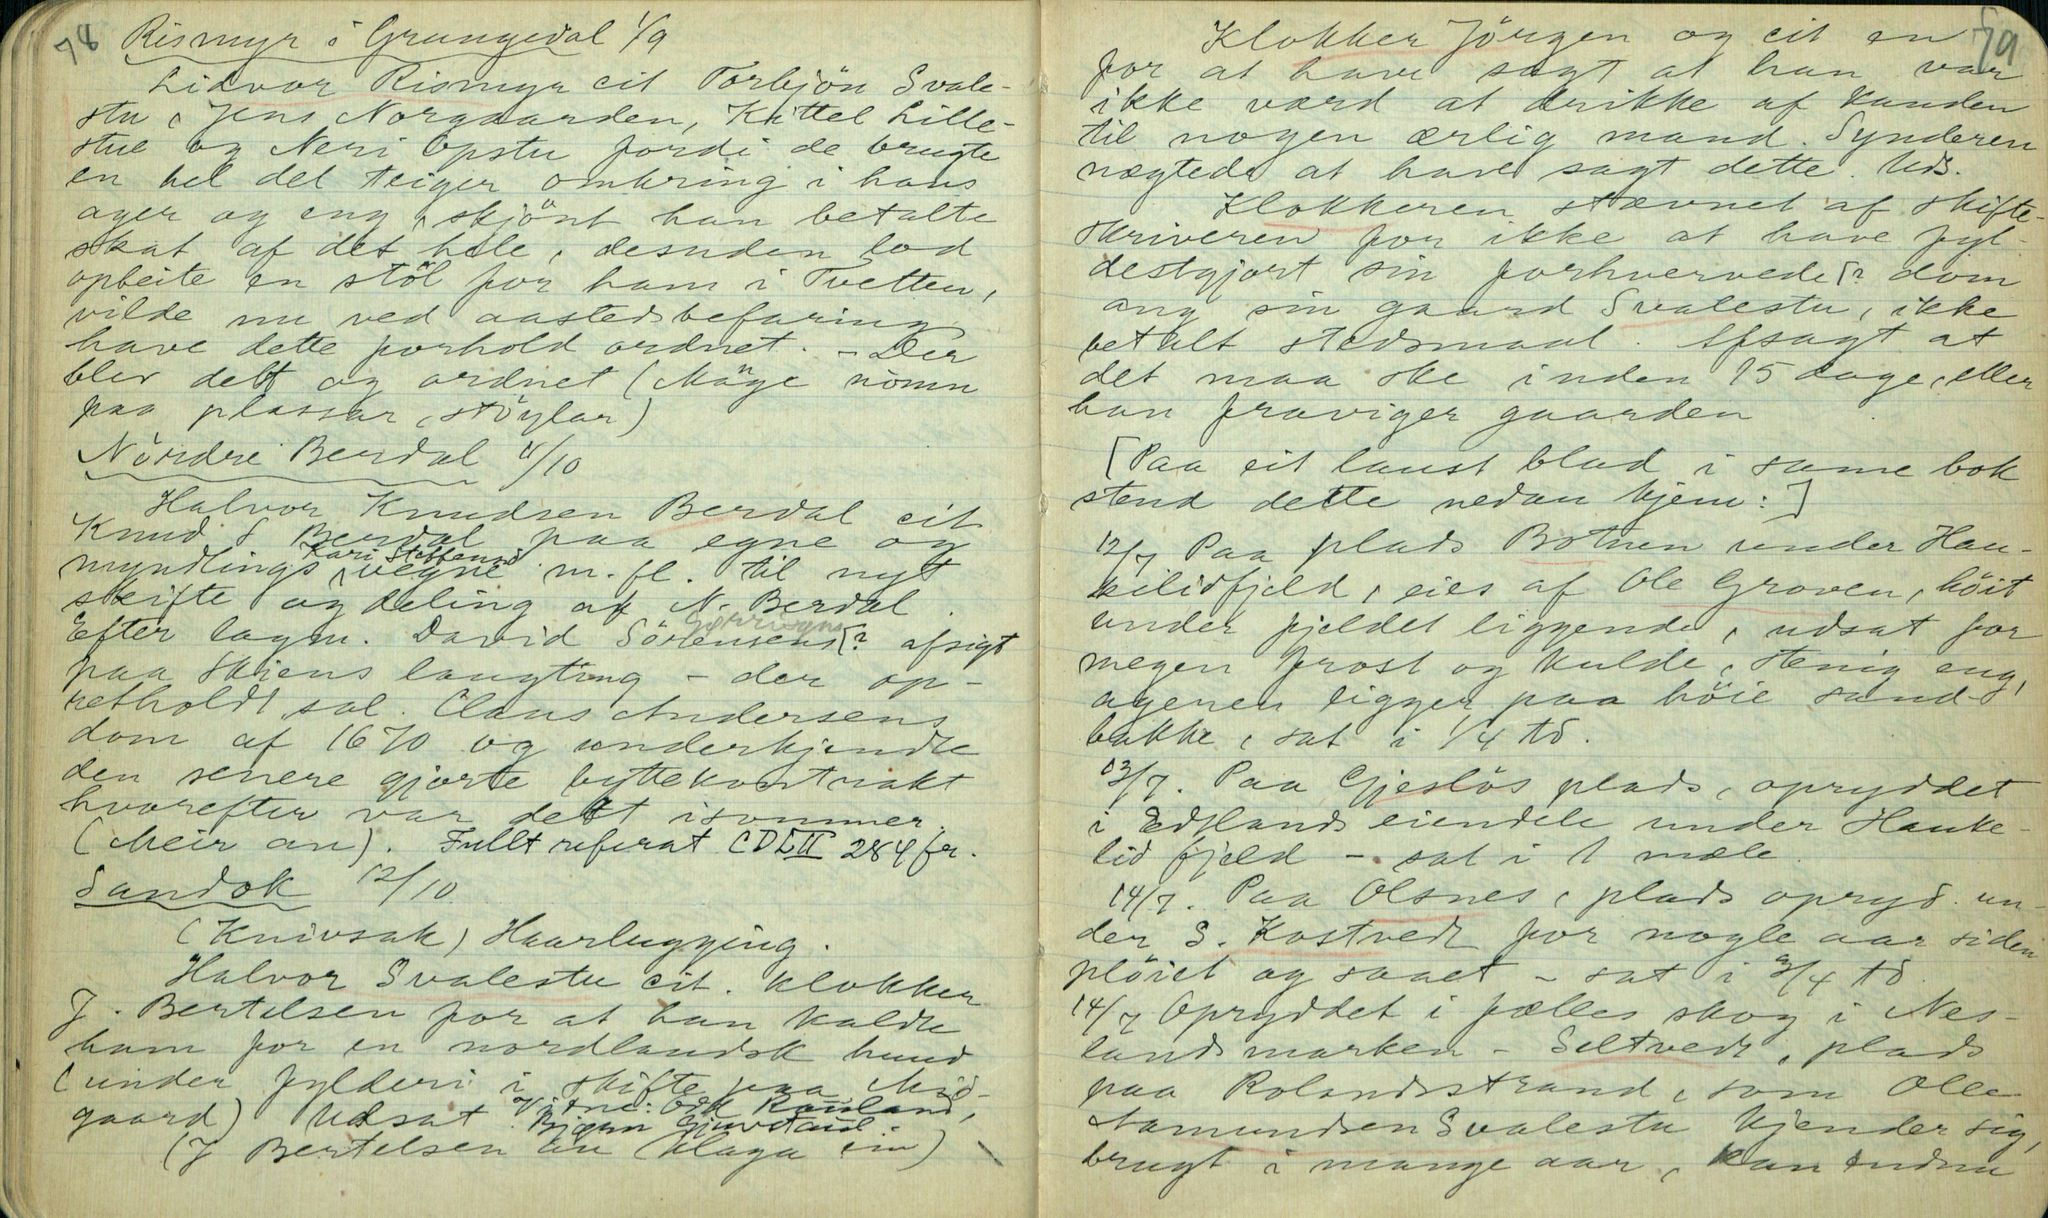 78
Rismyr i Grungedal 1/9
Lidvor Rismyr cit Torbjön Svale-
stu, Jens Norgaarden, Kittel Lille-
stue og Neri Opstu fordi de brugte
en hel del teiger omkring i hans
ager og eng, skjönt han betalte
skat af det hele, desuden lod
opbeite en stöl for ham i Tvetten,
vilde nu ved aastedsbefaring
have dette forhold ordnet. - Der
blev delt og ordnet (Mange nömn
paa plassar, stöylar)
Nördre Berdal 11/10
Halvor Knudsen Berdal cit
Knud S Berdal paa egne og
myndlings Kari Steffensd vegne m. fl. til nyt
skifte og deling af N. Berdal.
Efter lagm. David Sörensens [? afsigt
paa Skiens laugting - der op-
retholdt sal. Claus Andersens
dom af 1670 og underkjendte
den senere gjorte byttekontrakt
hvorefter var delt isommer.
(Meir an). Fullt referat CD LII 284 fr.
Sandok 12/10
(Knivsak) Haarlugging.
Halvor Svalestu cit. klokker
J. Bertelsen for at han kaldte
ham for en nordlandsk hund
(under fylderi i skifte paa Mid-
gaard) Udsat. Vitne: Odk Rauland,
Bjørn Gjuvland.
(J Bertelsen an klaga inn)
79
Klokker Jörgen og cit en
for at have sagt at han var
ikke værd at drikke af kanden
til nogen ærlig mand. Synderen
nægtede at have sagt dette. Uds.
Klokkeren stævnet af skifte-
skriveren for ikke at have fyl-
destgjort sin forhvervede [? dom
ang sin gaard Svalestu, ikke
betalt stedsmaal. Afsagt at
det maa ske inden 15 dage, eller
han fraviger gaarden
[Paa eit laust blad i same bok
stend dette nedan kjem:]
12/7 Paa plads Botnen under Hau-
kilidfjeld, eies af Ole Groven, höit
under fjeldet liggende, udsat for
megen frost og kulde, stenig eng,
ageren ligger paa höie sand-
bakke, sat i 1/4 td.
13/7. Paa Gjeslös plads, opryddet
i Edlands eiendele under Hauke-
lid fjeld - sat i 1 mæle
14/7. Paa Olsnes, plads opryd. un-
der S. Kostvedt for nogle aar siden
plöiet og saaet - sat i 3/4 td
14/7 Opryddet i fælles skog i Nes-
landsmarken - Seltvedt, plads
paa Rolandsstrand, som Ole
Aamundsen Svalestu kjender sig,
brugt i mange aar, kan endnu